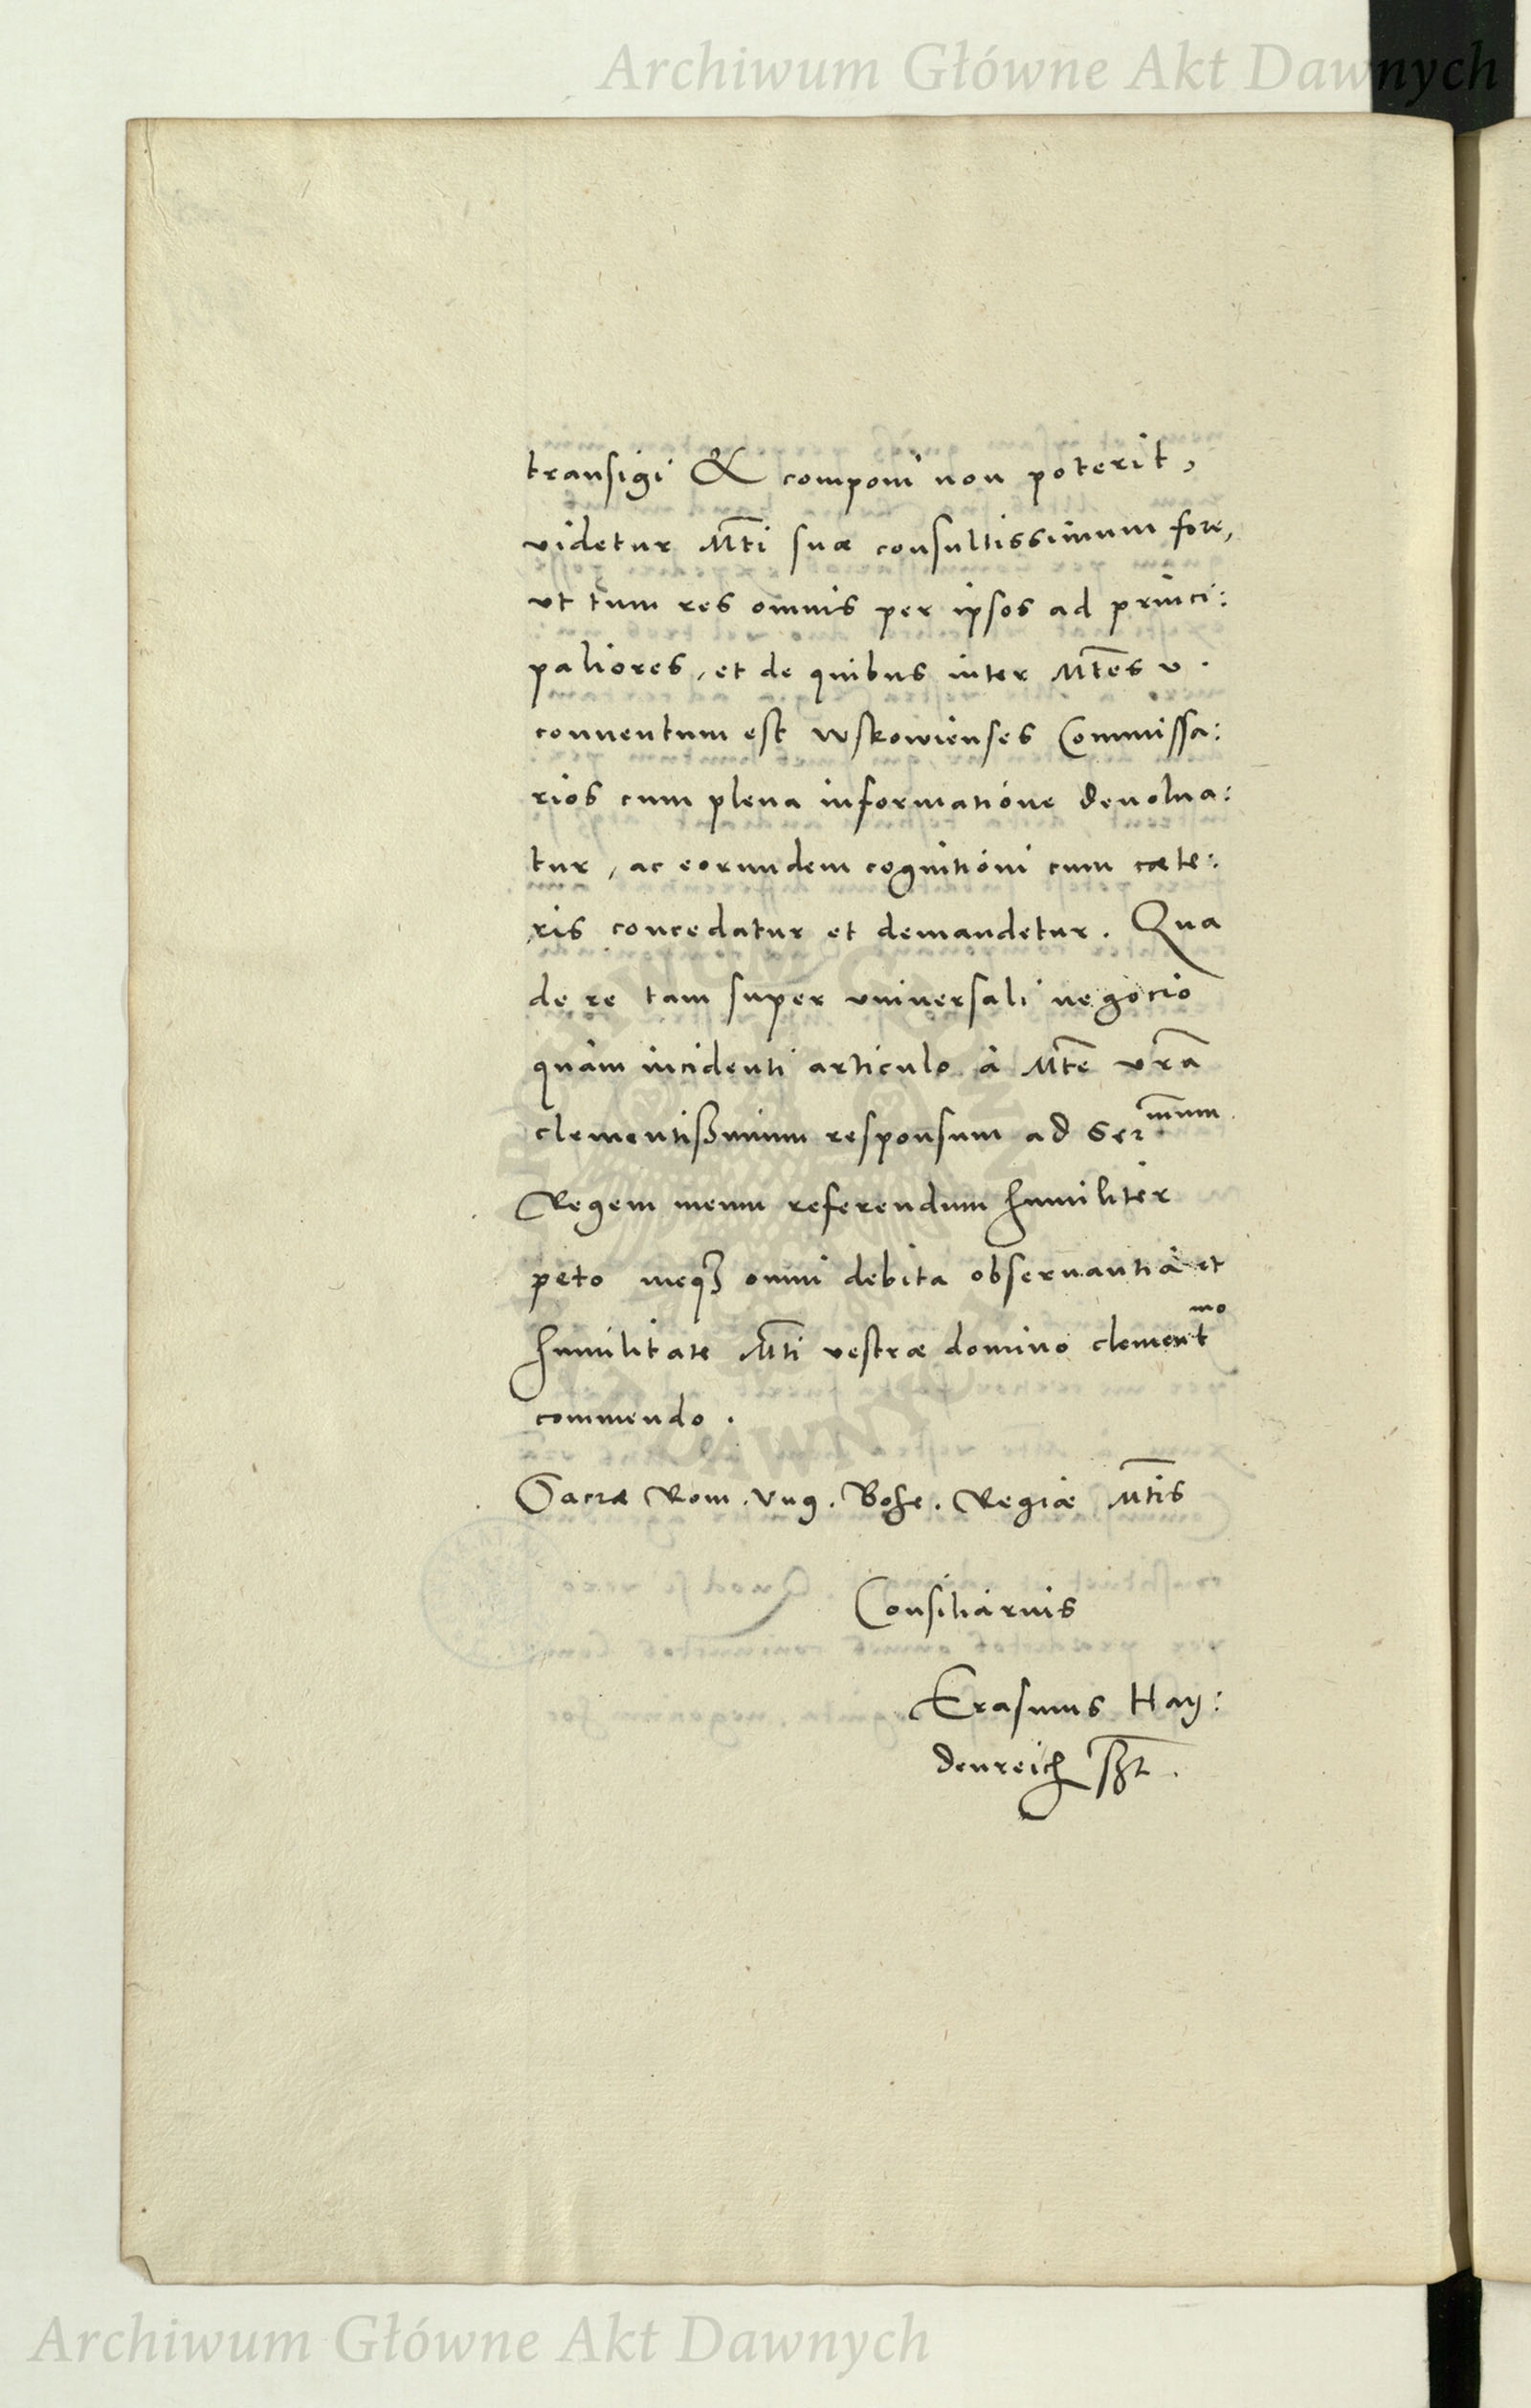 Archiwum Główne Akt Dawnych
transigi & componi non poterit,
videtur M̃ti suæ consultissimum fore,
vt tum res omnis per ipsos ad princi:
paliores, et de quibus inter Mt̃es v.
conuentum est Wskowienses Commissa:
rios cum plena informatione deuolua:
tur, ac eorundem cognitioni cum cæte:
ris concedatur et demandetur. Qua
de re tam super vniuersali negocio
quàm incidenti articulo à Mt̃e vr̃a
clementißimum responsum ad Ser.mum
Regem meum referendum humiliter
peto meqʒ omni debita obseruantia et
humilitate M̃ti vestræ domino clementmo
commendo.
Sacræ Rom. Vng. Bohe. Regiæ M̃tis
Consiliarius
Erasmus Hay:
denreich
Archiwum Główne Akt Dawnych